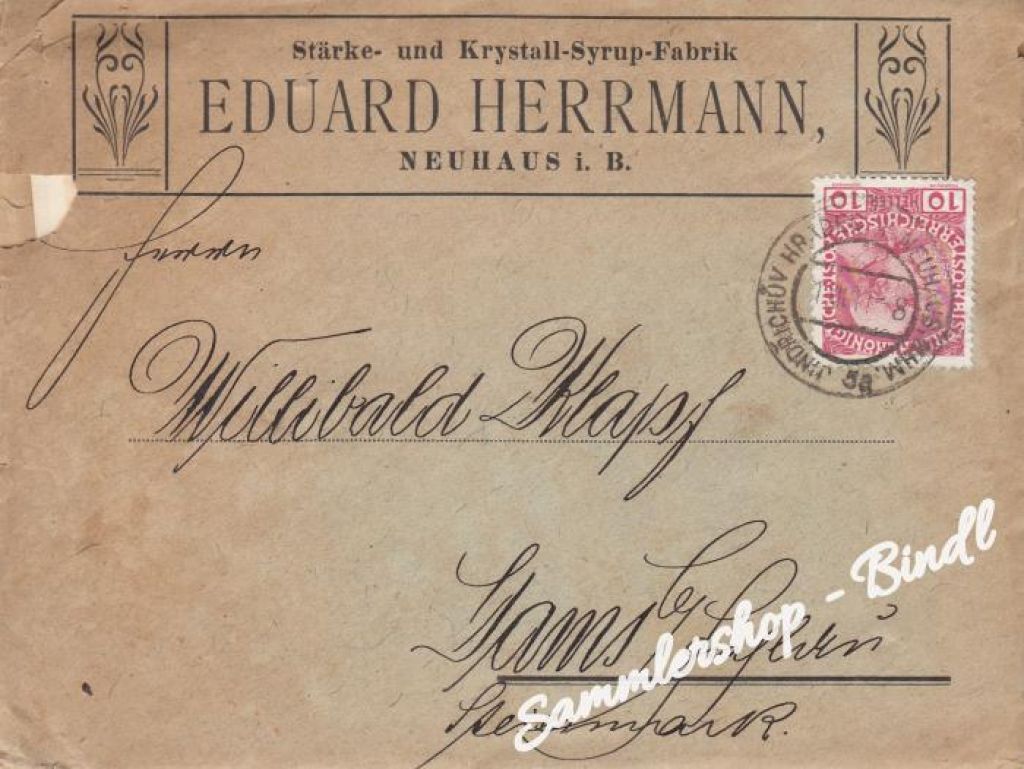 Stärke- und Krystall-Syrup-Fabrik
EDUARD HERRMANN,
NEUHAUS i. B.
10 HELLER 10
JINDŘICHŮV HRADEC NEUHAUS BÖHM.
8
5a
Herrn
Willibald Klapf
Gams b/
Steiermark.
Sammlershop - Bindl